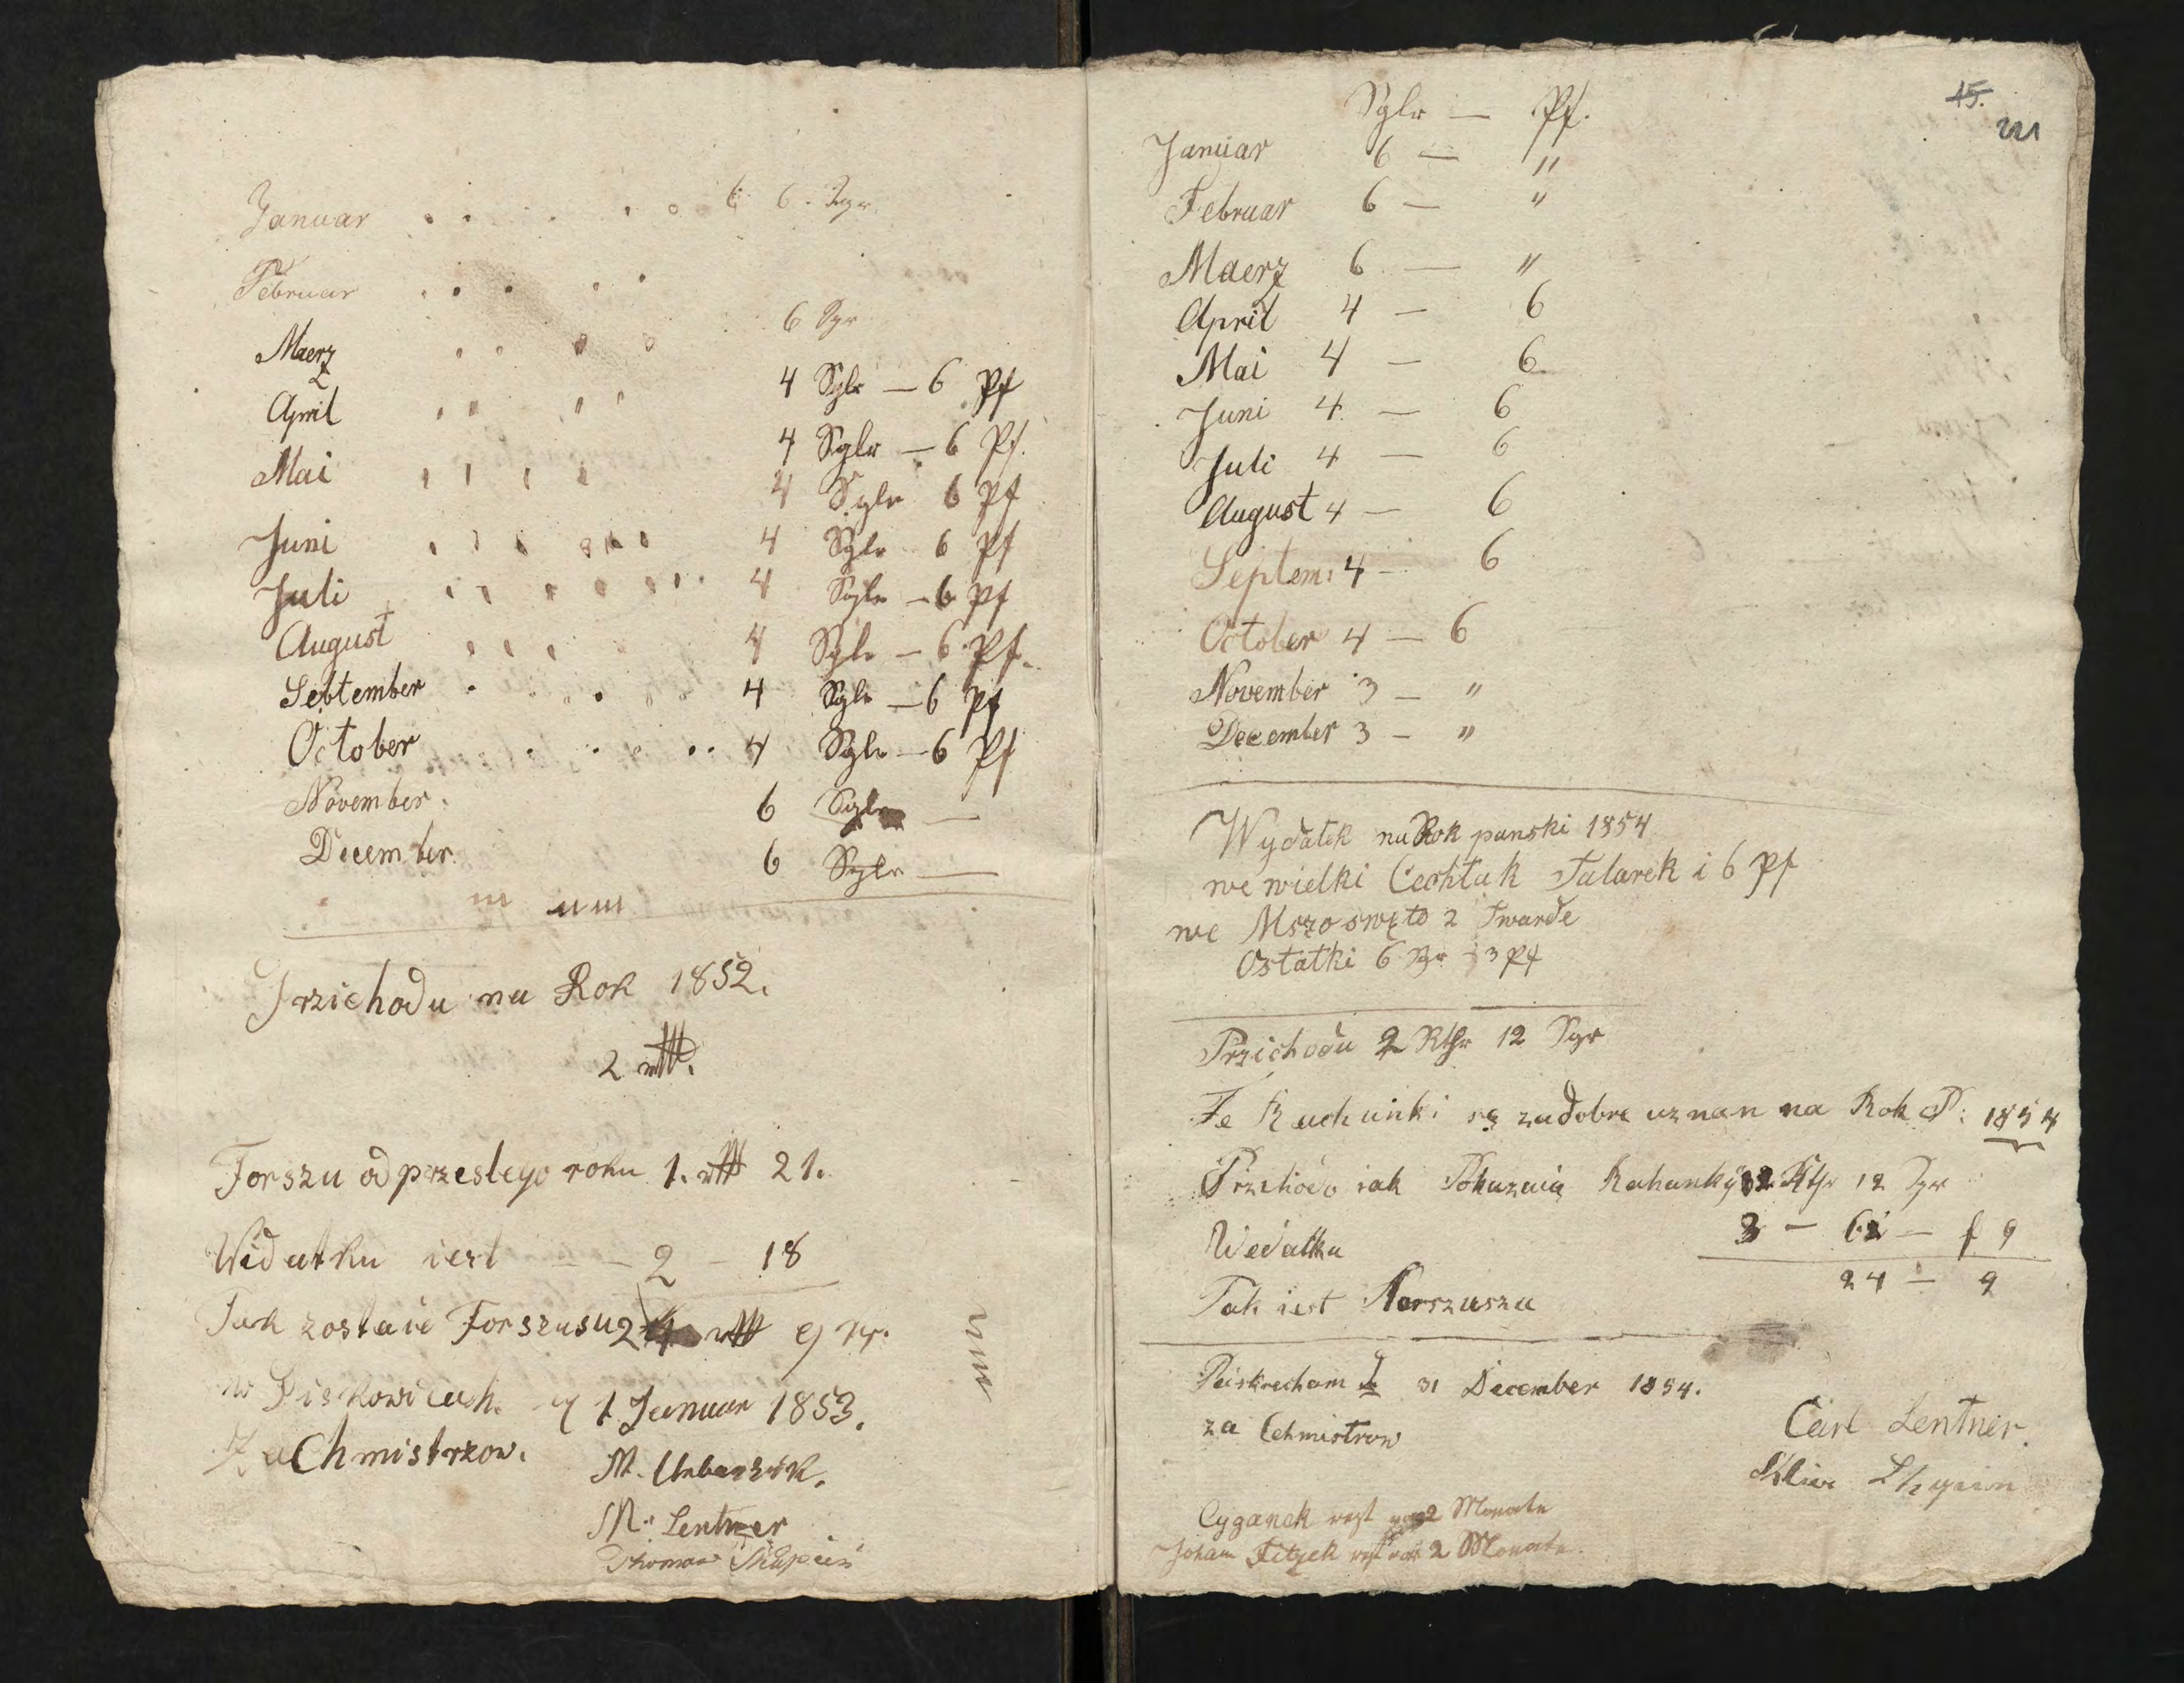 Januar . . . . . . 6 6. Sgr.
Februar . . . . .
6 Sgr
Maerz
4 Sglr — 6 Pf
April
4 Sglr — 6 Pf.
Mai
4 Sglr 6 Pf
Juni 4 Sglr 6 Pf
Juli 4 Sglr — 6 Pf
August 4 Sglr — 6 Pf.
Sebtember 4 Sglr — 6 Pf
October 4 Sglr — 6 Pf
November. 6 Sglr —
December. 6 Sglr —
Przichodu na Rok 1852.
2
Forszu od przeslego roku 1. 21.
Widatku iest — 2 — 18
Tak zostaie Forszusu 2
w Piskowicach. 1 Januar 1853.
Za Chmistrzow.
M. Urbanzik.
M. Lentner
Thomas
15.
221
Sglr — Pf.
Januar 6 — "
Februar 6 — "
Maerz 6 — "
April 4 — 6
Mai 4 — 6
Juni 4 — 6
Juli 4 — 6
August 4 — 6
Septem: 4 — 6
October 4 — 6
November 3 — "
December 3 — "
Wydatek na Rok panski 1854
we wielki Czwartek Talarek i 6 Pf
we Mszo swęto 2 Twarde
Ostatki 6 Sgr 3 Pf
Przichodu 2 Rthr 12 Sgr
Te Rachunki są zadobre uznan na Rok P: 1854
Przichodu iak Pokazuią Rahunky 2 Rthr 12 Sgr
Wedatku 3 — 6 — f 9
Tak iest Forszuszu 24 — 9
Peiskretcham d 31 December 1854.
za Cehmistrow
Carl Lentner.
Cyganek rest von 2 Monate
Johann Fitzek rest von 2 Monate.